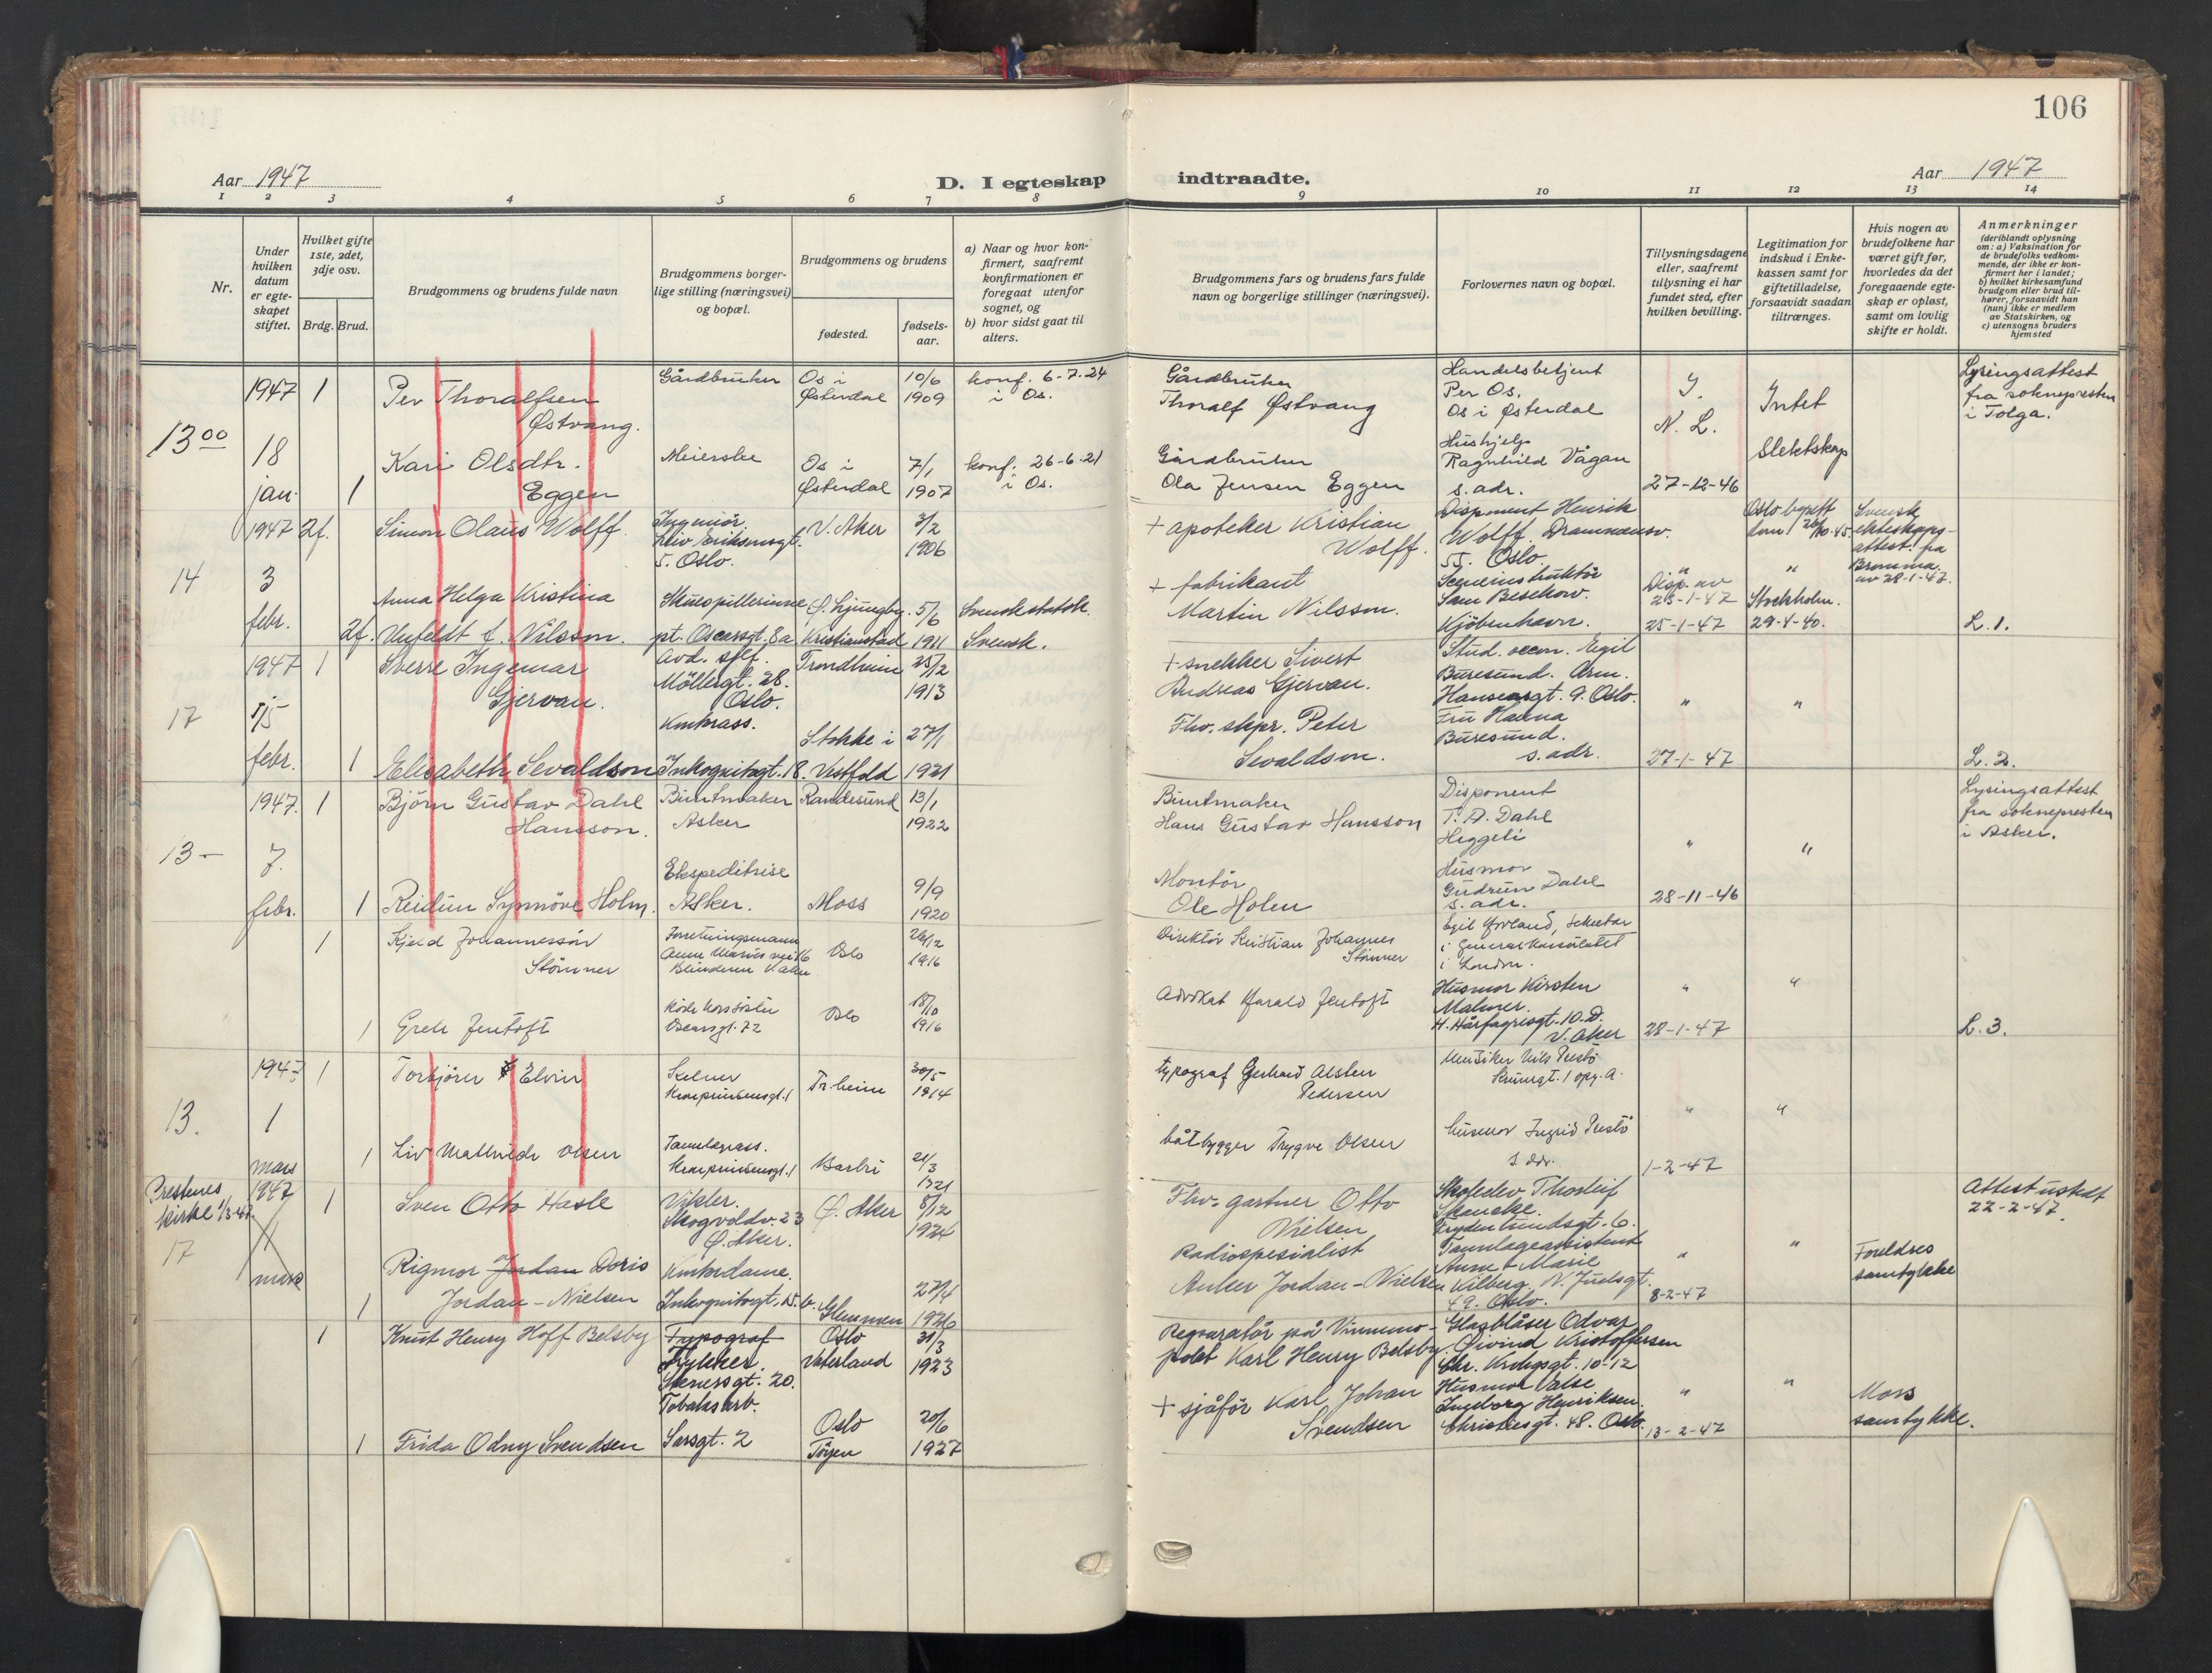 106
Aar 1947
D. I egteskap indtraadte.
Aar 1947
1 2 3 4 5 6 7 8 9 10 11 12 13 14
Nr.
Under hvilken datum er egteskapet stiftet.
Hvilket gifte 1ste, 2det, 3dje osv.
Brdg. Brud.
Brudgommens og brudens fulde navn
Brudgommens borgerlige stilling (næringsvei) og bopæl.
Brudgommens og brudens
fødested.
fødselsaar.
a) Naar og hvor konfirmert, saafremt konfirmationen er foregaat utenfor sognet, og
b) hvor sidst gaat til alters.
Brudgommens fars og brudens fars fulde navn og borgerlige stillinger (næringsvei).
Forlovernes navn og bopæl.
Tillysningsdagene eller, saafremt tillysning ei har fundet sted, efter hvilken bevilling.
Legitimation for indskud i Enkekassen samt for giftetilladelse, forsaavidt saadan tiltrænges.
Hvis nogen av brudefolkene har været gift før, hvorledes da det foregaaende egteskap er opløst, samt om lovlig skifte er holdt.
Anmerkninger
(deriblandt oplysning om: a) Vaksination for de brudefolks vedkommende, der ikke er konfirmert her i landet; b) hvilket kirkesamfund brudgom eller brud tilhører, forsaavidt han (hun) ikke er medlem av Statskirken, og c) utensogns bruders hjemsted
13 00
1947
18
jan.
1
Per Thoralfsen
Østvang.
Gårdbruker
Os i
Østerdal
10/6
1909
konf. 6-7-24
i Os.
Gårdbruker
Thoralf Østvang
Handelsbetjent
Per Os.
Os i Østerdal
N. L.
Intet
Slektskap
Lysingsattest
fra soknepresten
i Tolga.
1
Kari Olsdtr.
Eggen
Meierske
Os i
Østerdal
7/1
1907
konf. 26-6-21
i Os.
Gårdbruker
Ola Jensen Eggen
Hushjelp
Ragnhild Vågan
s. adr.
27-12-46
14
1947
3
febr.
2f.
Simon Olaus Wolff.
Ingeniör.
Leiv Eriksonsgt.
5. Oslo.
V. Aker
3/2
1906
+ apoteker Kristian
Wolff.
Disponent Henrik
Wolff. Drammensv.
55. Oslo.
Oslo byrett
Svensk
ekteskaps-
attest fra
Bromma
av 28-1-47.
2f.
Anna Helga Kristina
Nilsson.
Skuespillerinne
pt. Oscarsgt. 8a
Ø. Ljungby.
Kristianstad
5/6
1911
Svensk statsk.
Svensk.
+ fabrikant
Martin Nilsson.
Sceneinstruktör
Sam Besekow.
Kjöbenhavn.
Disp. av
25-1-47
25-1-47
"
Stockholm.
29-4-40.
L. 1.
17
1947
5/5
febr.
1
Sverre Ingemar
Gjervan.
Avd. sjef.
Möllergt. 28.
Oslo.
Trondheim
25/12
1913
+ snekker Sivert
Andreas Gjervan.
Stud. oecon. Egil
Buresund. Arm.
Hansensgt. 9. Oslo.
"
"
1
Elisabeth Sevaldson
Kontorass.
Inkognitogt. 18.
Stokke i
Vestfold
27/1
1921
Fhv. skpr. Peter
Sevaldson.
Fru Hanna
Buresund.
s. adr.
27-1-47
L. 2.
13-
1947.
7.
febr.
1
Björn Gustav Dahl
Hansson.
Buntmaker
Asker
Randesund
13/1
1922
Buntmaker
Hans Gustav Hansson
Disponent
T. A. Dahl
Heggeli
"
"
Lysingsattest
fra soknepresten
i Asker.
1
Reidun Synnöve Holm.
Ekspeditrise
Asker.
Moss
9/9
1920
Montör
Ole Holm
Husmor
Gudrun Dahl
s. adr.
28-11-46
1
Kjeld Johannessön
Störmer
Forretningsmann
Anne Maries vei 16
Blindern V. Aker
Oslo
26/12
1916
Direktör Kristian Johannes
Störmer
i Generalkonsulatet
i London.
1
Grete Jentoft
Röde kors söster
Oscarsgt. 72
Oslo
18/10
1916
Advokat Harald Jentoft
Husmor Kirsten
Malmer.
H. Hårfagresgt. 10. D.
V. Aker
"
"
28-1-47
L. 3.
13.
1947
1
mars
1
Torbjörn Elvin
Kelner
Kronprinsensgt. 1
Tr.heim
30/5
1914
typograf Gerhard Alsten
Pedersen
Musiker Nils Prestö
"
"
1
Liv Mathilde Olsen
Tannlegeass.
Kronprinsensgt. 1
Barbu
21/3
1921
båtbygger Trygve Olsen
husmor Ingrid Prestö
s. adr.
1-2-47
Prestenes
kirke 1/3-47.
17
1947
mars
1
Sven Otto Hasle
Vikler.
Skogvoldv. 23
Ø. Aker.
Ø. Aker
8/12
1924
Fhv. gartner Otto
Nielsen
Skoledev Thorleif
Skancke.
Frydenlundsgt. 6.
"
"
Attest utstedt
22-2-47.
1
Rigmor Jordan Doris
Jordan-Nielsen
Kontordame.
Inkognitogt. 15. b.
Glemmen
27/4
1926
Radiospesialist
Anker Jordan-Nielsen
Tannlegeassistent
Anne Marie
Kilberg. N. Juelsgt.
49. Oslo.
8-2-47
Foreldres
samtykke
1
Knut Henry Hoff Belsby
Typograf
Trykker.
Stenersgt. 20.
Oslo
Vaterland
31/3
1923
Reparatör på Vinmono-
polet Karl Henry Belsby.
Glassblåser Odvar
Øivind Kristoffersen
Chr. Krohgsgt. 10-12
"
"
1
Frida Odny Svendsen
Tobaksarb.
Sarsgt. 2
Oslo
Töyen
20/6
1927
+ sjåför Karl Johan
Svendsen
Husmor Valse
Ingeborg Henriksen.
Christiesgt. 48. Oslo.
13-2-47
Mors
samtykke.